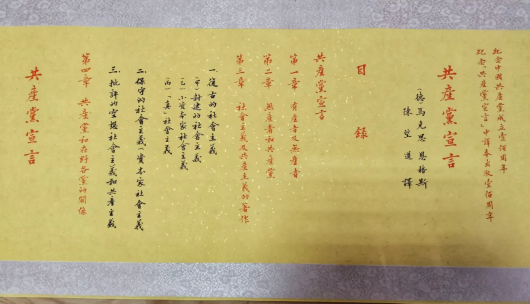 纪念中國共產黨成立壹佰周年
纪念“共產黨宣言”中譯本出版壹佰周年
共產黨宣言
(德)馬克思 恩格斯
陳望道 譯
目錄
共產黨宣言
第一章 有產者及無產者
第二章 無產者和共產黨
第三章 社會主義及共產主義的著作
一.復古的社會主義
(甲)封建的社會主義
(乙)小資本家社會主義
(丙)“真”社會主義
二.保守的社會主義(資本家社會主義)
三.批評的空想社會主義和共產主義
第四章 共產黨和在野各黨的關係
共產黨宣言